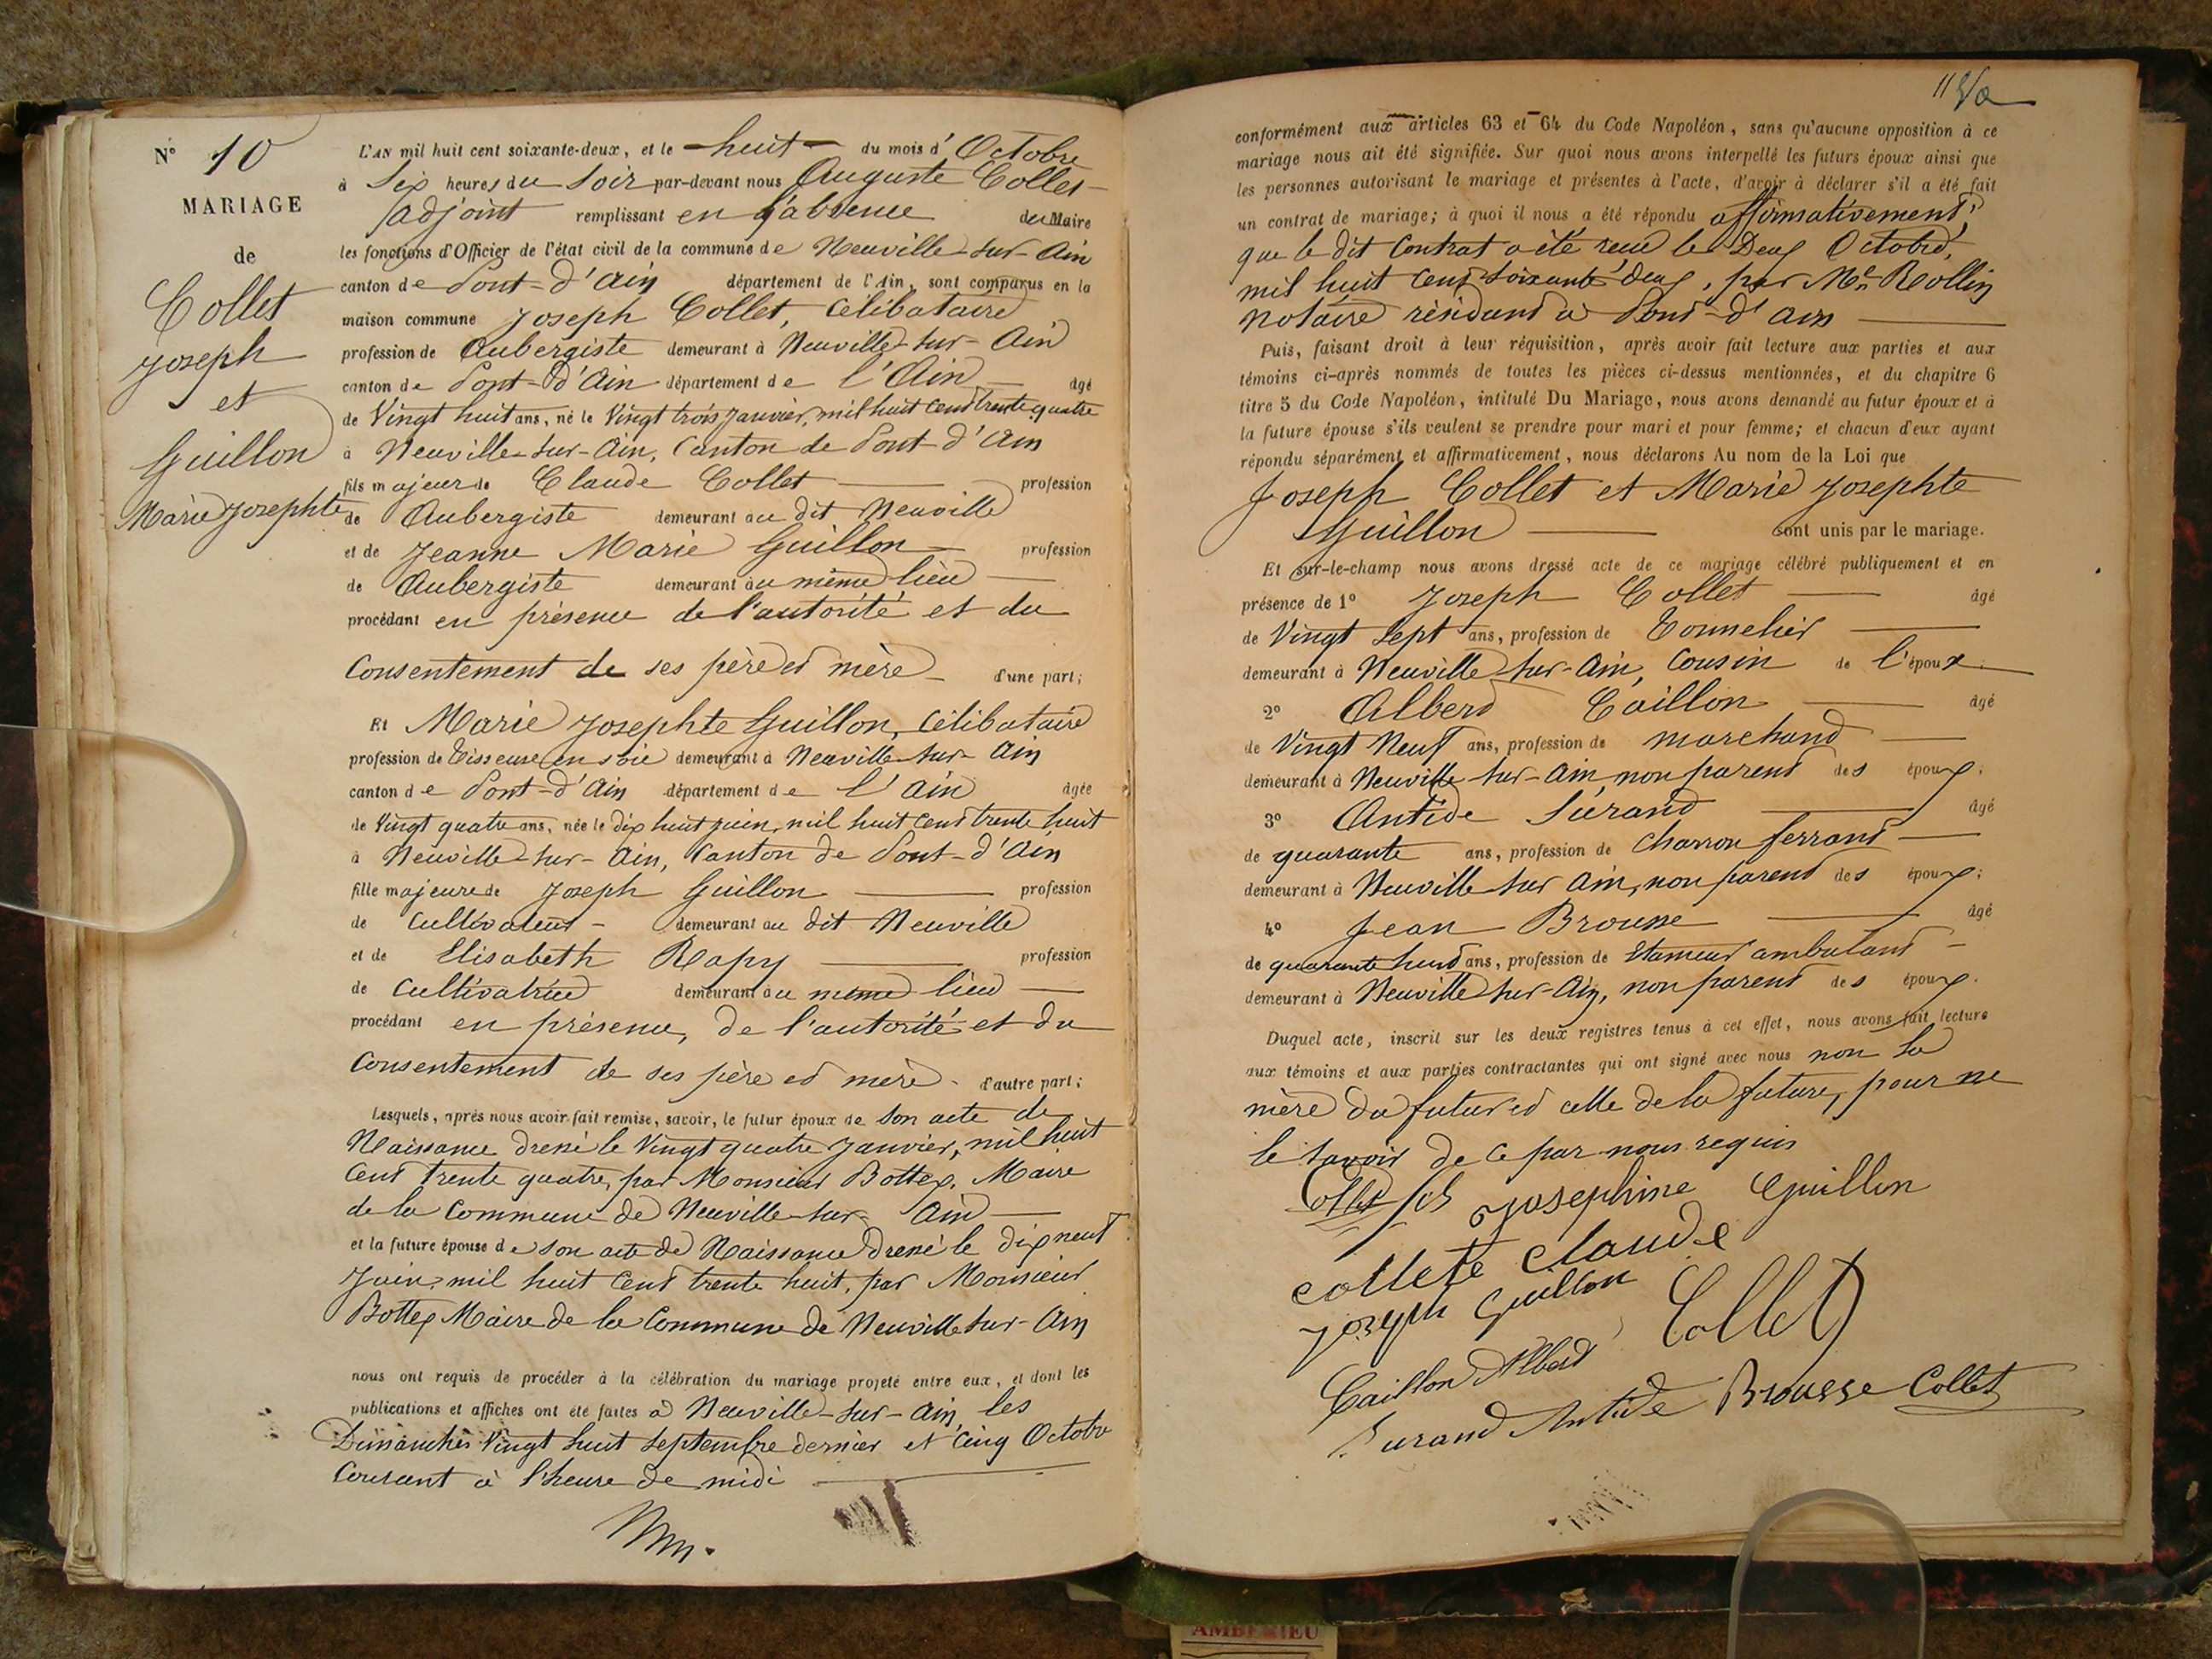 N° 10
MARIAGE
de
Collet
Joseph
et
Guillon
Marie Josephte
L'AN mil huit cent soixante-deux, et le huit du mois d'Octobre
à Six heures du Soir par-devant nous Auguste Collet
adjoint remplissant en l'absence du Maire
les fonctions d'Officier de l'état civil de la commune de Neuville-sur-Ain
canton de Pont-d'Ain département de l'Ain, sont comparus en la
maison commune Joseph Collet, Célibataire
profession de Aubergiste demeurant à Neuville-sur-Ain
canton de Pont-d'Ain département de l'Ain âgé
de Vingt huit ans, né le Vingt trois Janvier, mil huit cent trente quatre
à Neuville-sur-Ain, Canton de Pont-d'Ain
fils majeur de Claude Collet profession
de Aubergiste demeurant au dit Neuville
et de Jeanne Marie Guillon profession
de Aubergiste demeurant au même lieu
procédant en présence de l'autorité et du
Consentement de ses père et mère d'une part;
Et Marie Josephte Guillon, Célibataire
profession de Tisseuse en soie demeurant à Neuville-sur-Ain
canton de Pont-d'Ain département de l'Ain âgée
de Vingt quatre ans, née le dix huit juin, mil huit cent trente huit
à Neuville-sur-Ain, Canton de Pont-d'Ain
fille majeure de Joseph Guillon profession
de Cultivateur demeurant au dit Neuville
et de Elisabeth Rapy profession
de Cultivatrice demeurant au même lieu
procédant en présence, de l'autorité et du
Consentement de ses père et mère d'autre part;
Lesquels, après nous avoir fait remise, savoir, le futur époux de son acte de
Naissance dressé le Vingt quatre Janvier, mil huit
Cent trente quatre, par Monsieur Bottex, Maire
de la Commune de Neuville-sur-Ain
et la future épouse de son acte de Naissance dressé le dix neuf
Juin mil huit Cent trente huit, par Monsieur
Bottex Maire de la Commune de Neuville sur-Ain
nous ont requis de procéder à la célébration du mariage projeté entre eux, et dont les
publications et affiches ont été faites à Neuville-sur-Ain, les
Dimanches Vingt huit Septembre dernier et Cinq Octobre
Courant à l'heure de midi
conformément aux articles 63 et 64 du Code Napoléon, sans qu'aucune opposition à ce
mariage nous ait été signifiée. Sur quoi nous avons interpellé les futurs époux ainsi que
les personnes autorisant le mariage et présentes à l'acte, d'avoir à déclarer s'il a été fait
un contrat de mariage; à quoi il nous a été répondu affirmativement,
que le dit Contrat a été reçu le Deux Octobre,
mil huit Cent soixante deux, par Me Rollin
notaire résidant à Pont-d'Ain
Puis, faisant droit à leur réquisition, après avoir fait lecture aux parties et aux
témoins ci-après nommés de toutes les pièces ci-dessus mentionnées, et du chapitre 6
titre 5 du Code Napoléon, intitulé Du Mariage, nous avons demandé au futur époux et à
la future épouse s'ils veulent se prendre pour mari et pour femme; et chacun d'eux ayant
répondu séparément et affirmativement, nous déclarons Au nom de la Loi que
Joseph Collet et Marie Josephte
Guillon sont unis par le mariage.
Et sur-le-champ nous avons dressé acte de ce mariage célébré publiquement et en
présence de 1° Joseph Collet âgé
de Vingt Sept ans, profession de Tonnelier
demeurant à Neuville-sur-Ain, Cousin de l'époux
2° Albert Caillon âgé
de Vingt Neuf ans, profession de marchand
demeurant à Neuville sur-Ain, non parent des époux;
3° Antide Surand âgé
de quarante ans, profession de Charron ferrant
demeurant à Neuville sur Ain, non parent des époux;
4° Jean Brousse âgé
de quarante huit ans, profession de Etameur ambulant
demeurant à Neuville sur-Ain, non parent des époux.
Duquel acte, inscrit sur les deux registres tenus à cet effet, nous avons fait lecture
aux témoins et aux parties contractantes qui ont signé avec nous non la
mère du futur et celle de la future, pour ne
le savoir de ce par nous requis
Collet fils Josephine Guillon
collete claude
joseph Guillon Collet
Caillon Albert
Surand Antide Brousse Collet
AMBERIEU